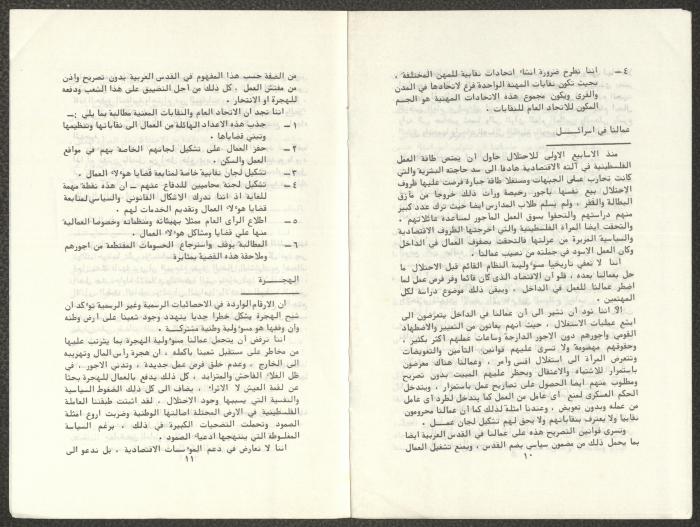 ٤ ــ اننا نطرح ضرورة انشاء اتحادات نقابية للمهن المختلفة ،
بحيث تكون نقابات المهنة الواحدة فرع لاتحادها في المدن
والقرى ويكون مجموع هذه الاتحادات المهنية هو الجسم
المكون للاتحاد العام للنقابات .
عمالنا في اسرائيـــل
منذ الاسابيع الاولى للاحتلال حاول أن يمتص طاقة العمل
الفلسطينية في آلته الاقتصادية هادفا الى سد حاجته البشرية والتي
كانت تحارب على الجبهات ومستغلا طاقة جبارة فرضت عليها ظروف
الاحتلال بيع نفسها بأجور رخيصة ورأت ذلك خروجا من مأزق
البطالة والفقر ، ولم يسلم طلاب المدارس ايضا حيث ترك عدد كبير
منهم دراستهم والتحقوا بسوق العمل المأجور لمساعدة عائلاتهم .
والتحقت ايضا المرأة الفلسطينية والتي اخرجتها الظروف الاقتصادية
والسياسية المزرية من عزلتها فالتحقت بصفوف العمال في الداخل
وكان العمل الاسود في جملته من نصيب عمالنا .
اننا لا نعفي تاريخيا مسؤولية النظام القائم قبل الاحتلال ما
حل بعمالنا بعده ، فلو أن الاقتصاد الذي كان قائما وفر فرص عمل لما
اضطر عمالنا للعمل في الداخل ، ويبقى ذلك موضوع دراسة لكل
المهتمين .
الا اننا نود أن نشير الى أن عمالنا في الداخل يتعرضون الى
ابشع عمليات الاستغلال ، حيث انهم يعانون من التمييز والاضطهاد
القومي واجورهم دون الاجور الدارجة وساعات عملهم أكثر بكثير ،
وحقوقهم مهضومة ولا تسرى عليهم قوانين التأمين والتعويضات
وتتعرض المرأة الى استغلال اقسى وأمر ، وعمالنا هناك معرضون
باستمرار للاشتباه والاعتقال ويحظر عليهم المبيت بدون تصريح
ومطلوب منهم ايضا الحصول على تصاريح عمل باستمرار ، ويتدخل
الحكم العسكرى لمنع أى عامل من العمل كما يتدخل لطرد أى عامل
من عمله وبدون تعويض ، وعندنا امثلة لذلك كما أن عمالنا محرومون
نقابيا ولا يعترف بنقاباتهم ولا يحق لهم تشكيل لجان عمـــل .
وتسرى قوانين التصريح هذه على عمالنا في القدس العربية ايضا
بما يحمل ذلك من مضمون سياسي بضم القدس ، ويمنع تشغيل العمال
١٠
من الضفة حسب هذا المفهوم في القدس العربية بدون تصريح واذن
من مفتش العمل . كل ذلك من أجل التضييق على هذا الشعب ودفعه
للهجرة أو الانتحار .
اننا نجد أن الاتحاد العام والنقابات المعنية مطالبة بما يلي :ــ
١ ــ جذب هذه الاعداد الهائلة من العمال الى نقاباتها وتنظيمها
وتبني قضاياها .
٢ ــ حفز العمال على تشكيل لجانهم الخاصة بهم في مواقع
العمل والسكن .
٣ ــ تشكيل لجان نقابية خاصة لمتابعة قضايا هؤلاء العمال .
٤ ــ تشكيل لجنة محاميين للدفاع عنهم ــ ان هذه نقطة مهمة
للغاية اذ اننا ندرك الاشكال القانوني والسياسي لمتابعة
قضايا هؤلاء العمال وتقديم الخدمات لهم .
٥ ــ اطلاع الرأى العام ممثلا بهيئاته ومنظماته وخصوصا العمالية
منها على قضايا ومشاكل هؤلاء العمال .
٦ ــ المطالبة بوقف واسترجاع الحسومات المقتطعة من اجورهم
وملاحقة هذه القضية بمثابرة .
الهجـــرة
ان الارقام الواردة في الاحصائيات الرسمية وغير الرسمية تؤكد أن
شبح الهجرة يشكل خطرا جديا يتهدد وجود شعبنا على أرض وطنه
وأن وقفها هو مسؤولية وطنية مشتركـــة .
اننا نرفض أن يتحمل عمالنا مسؤولية الهجرة بما يترتب عليها
من مخاطر على مستقبل شعبنا بأكمله . ان هجرة رأس المال وتهريبه
الى الخارج ، وعدم خلق فرص عمل جديدة ، وتدني الاجور . في
ظل الغلاء الفاحش والمتزايد ، كل ذلك يدفع بالعمال للهجرة بحثا
عن لقمة العيش لا الاثراء ، يضاف الى كل ذلك الضغوط السياسية
والنفسية التي يسببها وجود الاحتلال . لقد أثبتت طبقتنا العاملة
الفلسطينية في الارض المحتلة اصالتها الوطنية وضربت اروع امثلة
الصمود وتحملت التضحيات الكبيرة في ذلك ، برغم السياسة
المغلوطة التي ينتهجها ادعياء الصمود .
اننا لا نعارض في دعم المؤسسات الاقتصادية ، بل ندعو الى
١١